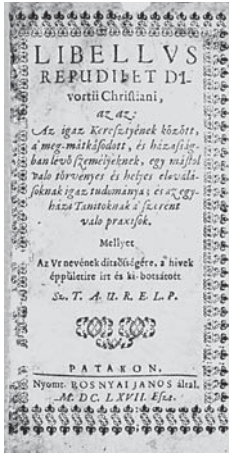 LIBELLVS
REPUDII ET DI-
vortii Christiani,
az az:
Az igaz Keresztyének között,
a' meg-mátkásodott, és házaság-
ban levö személyeknek, egy mástol
valo törvényes és helyes elovalá-
soknak igaz tudománya; és az egy-
házi Tanitoknak a' szerént
valo praxisok.
Mellyet
Az Ur nevének ditsöiségére, a' hivek
éppületire irt és ki-botsátott
Sz. T. A. U. R. E. L. P.
PATAKON,
Nyomt. ROSNYAI JANOS által,
M. DC. LXVII. Eszt.